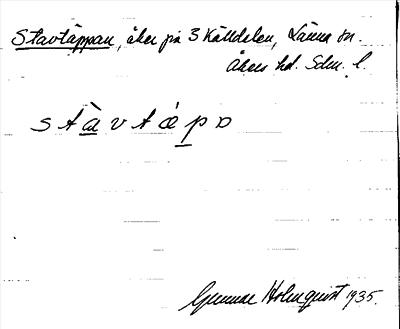 Stavtäppan, åker på 3 Källdalen, Länna sn.
Åkers hd. Sdm. l.
stàvtæ̀pɒ
Gunnar Holmquist 1935.